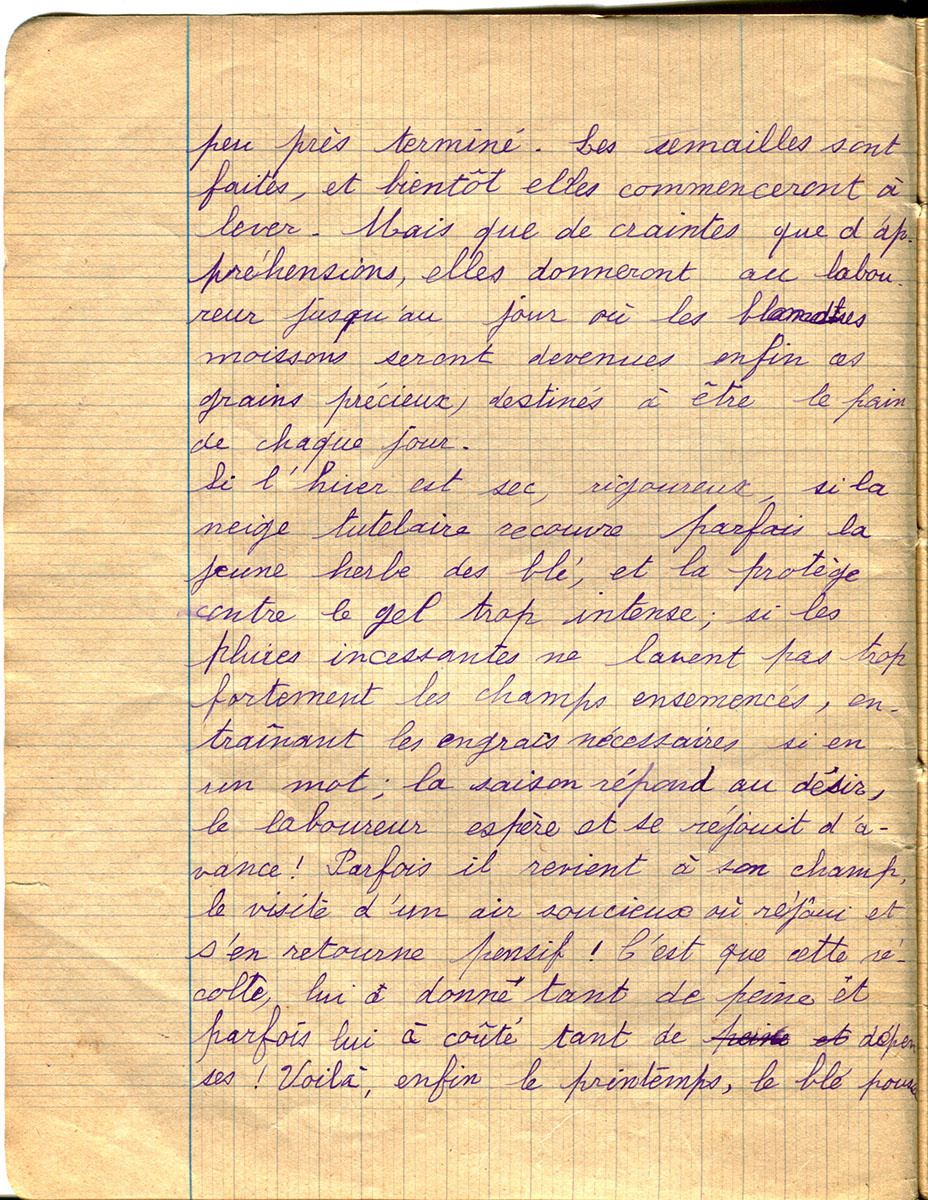 peu près terminé. Les semailles sont
faites, et bientôt elles commenceront à
lever. Mais que de craintes que d'ap-
préhensions, elles donneront au labou-
reur jusqu'au jour où les
moissons seront devenues enfin ces
grains précieux, destinés à être le pain
de chaque jour.
Si l'hiver est sec, rigoureux, si la
neige tutelaire recouvre parfois la
jeune herbe des blé, et la protège
contre le gel trop intense; si les
pluies incessantes ne lavent pas trop
fortement les champs ensemencés, en-
traînant les engrais nécessaires si en
un mot; la saison répond au désir,
le laboureur espère et se réjouit d'a-
vance! Parfois il revient à son champ,
le visite d'un air soucieux où réjoui et
s'en retourne pensif! C'est que cette ré-
colte, lui à donné tant de peine et
parfois lui à coûté tant de peine et dépen
ses! Voilà, enfin le printemps, le blé pousse